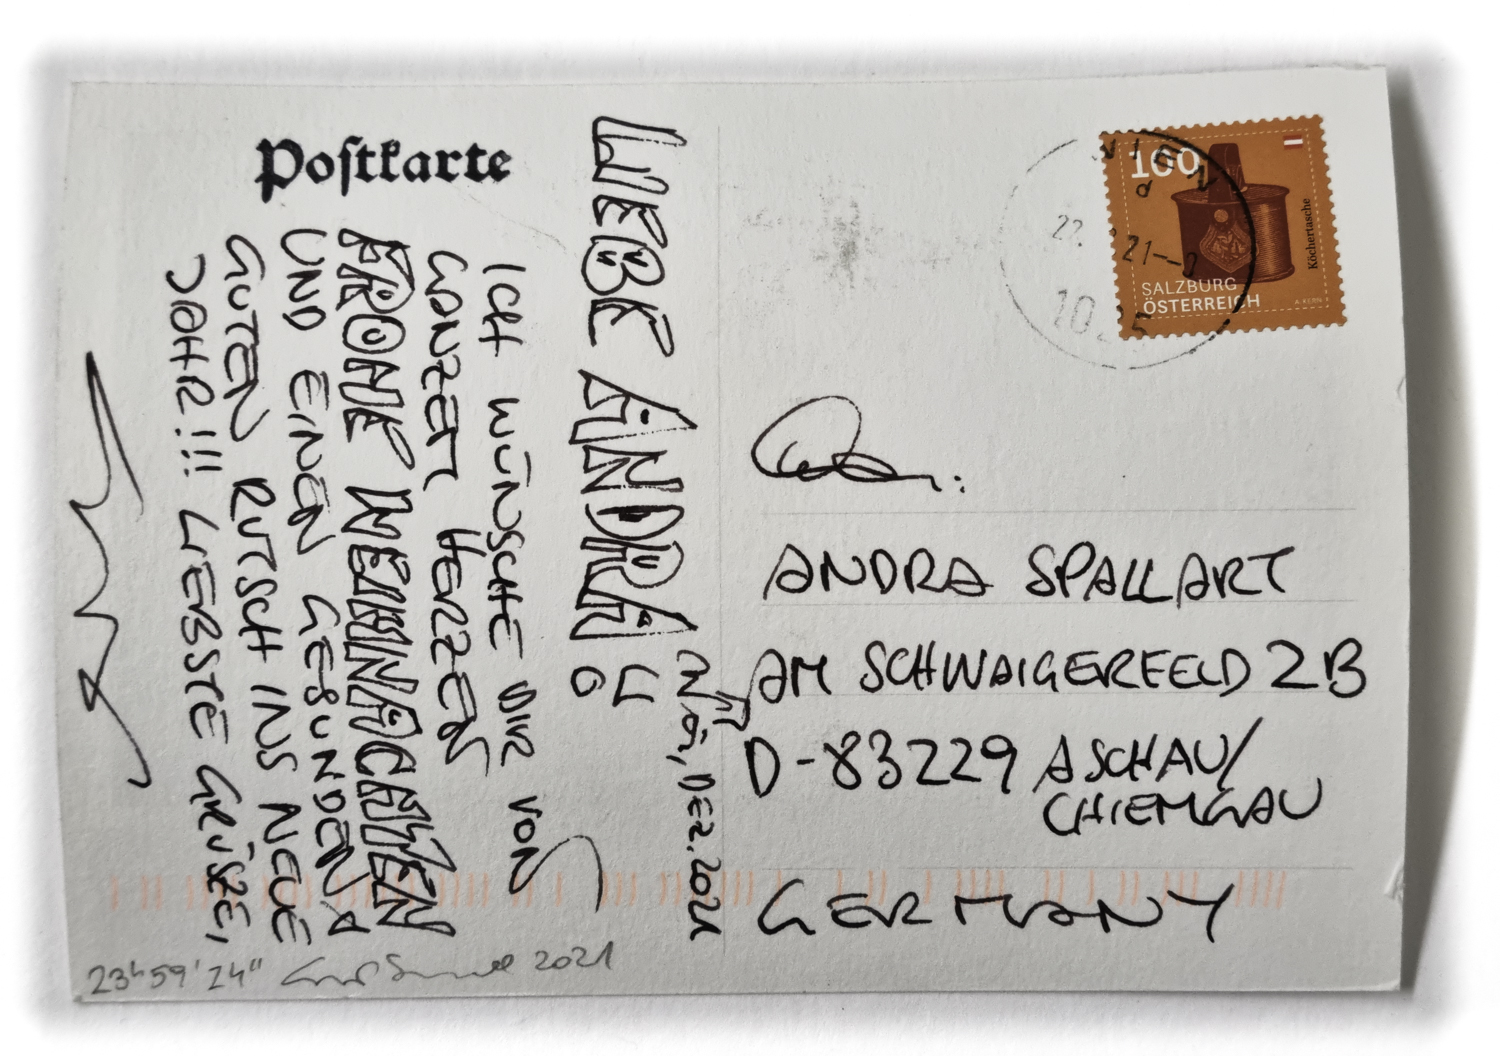 Poſtkarte
LIEBE ANDRA!
WÖ, DEZ. 2021
ICH WÜNSCHE DIR VON
GANZEM HERZEN
FROHE WEIHNACHTEN
UND EINEN GESUNDEN,
GUTEN RUTSCH INS NEUE
JAHR!!! LIEBSTE GRÜSZE,
23h59'24" 2021
WIEN
22. 21--
160
Köchertasche
SALZBURG
ÖSTERREICH
A. KERN
An:
ANDRA SPALLART
AM SCHWAIGERFELD 2B
D-83229 ASCHAU/
CHIEMGAU
GERMANY